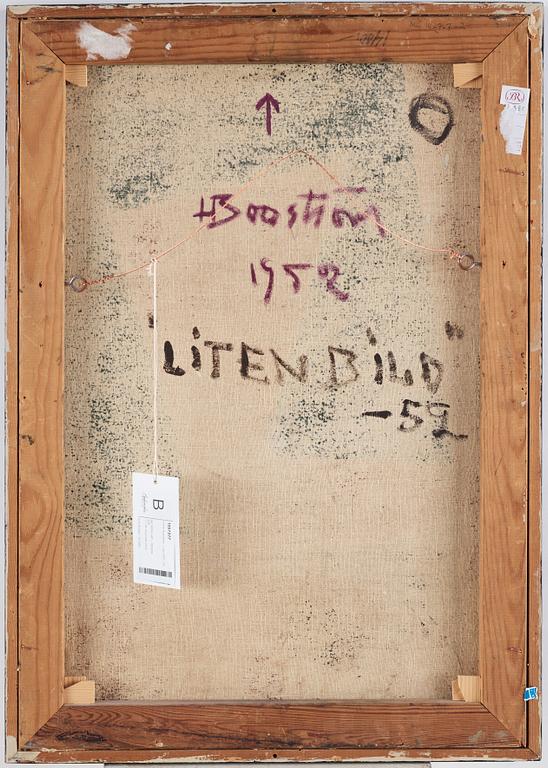 ↑
HBoström
1952
"LITEN BILD"
-52
B